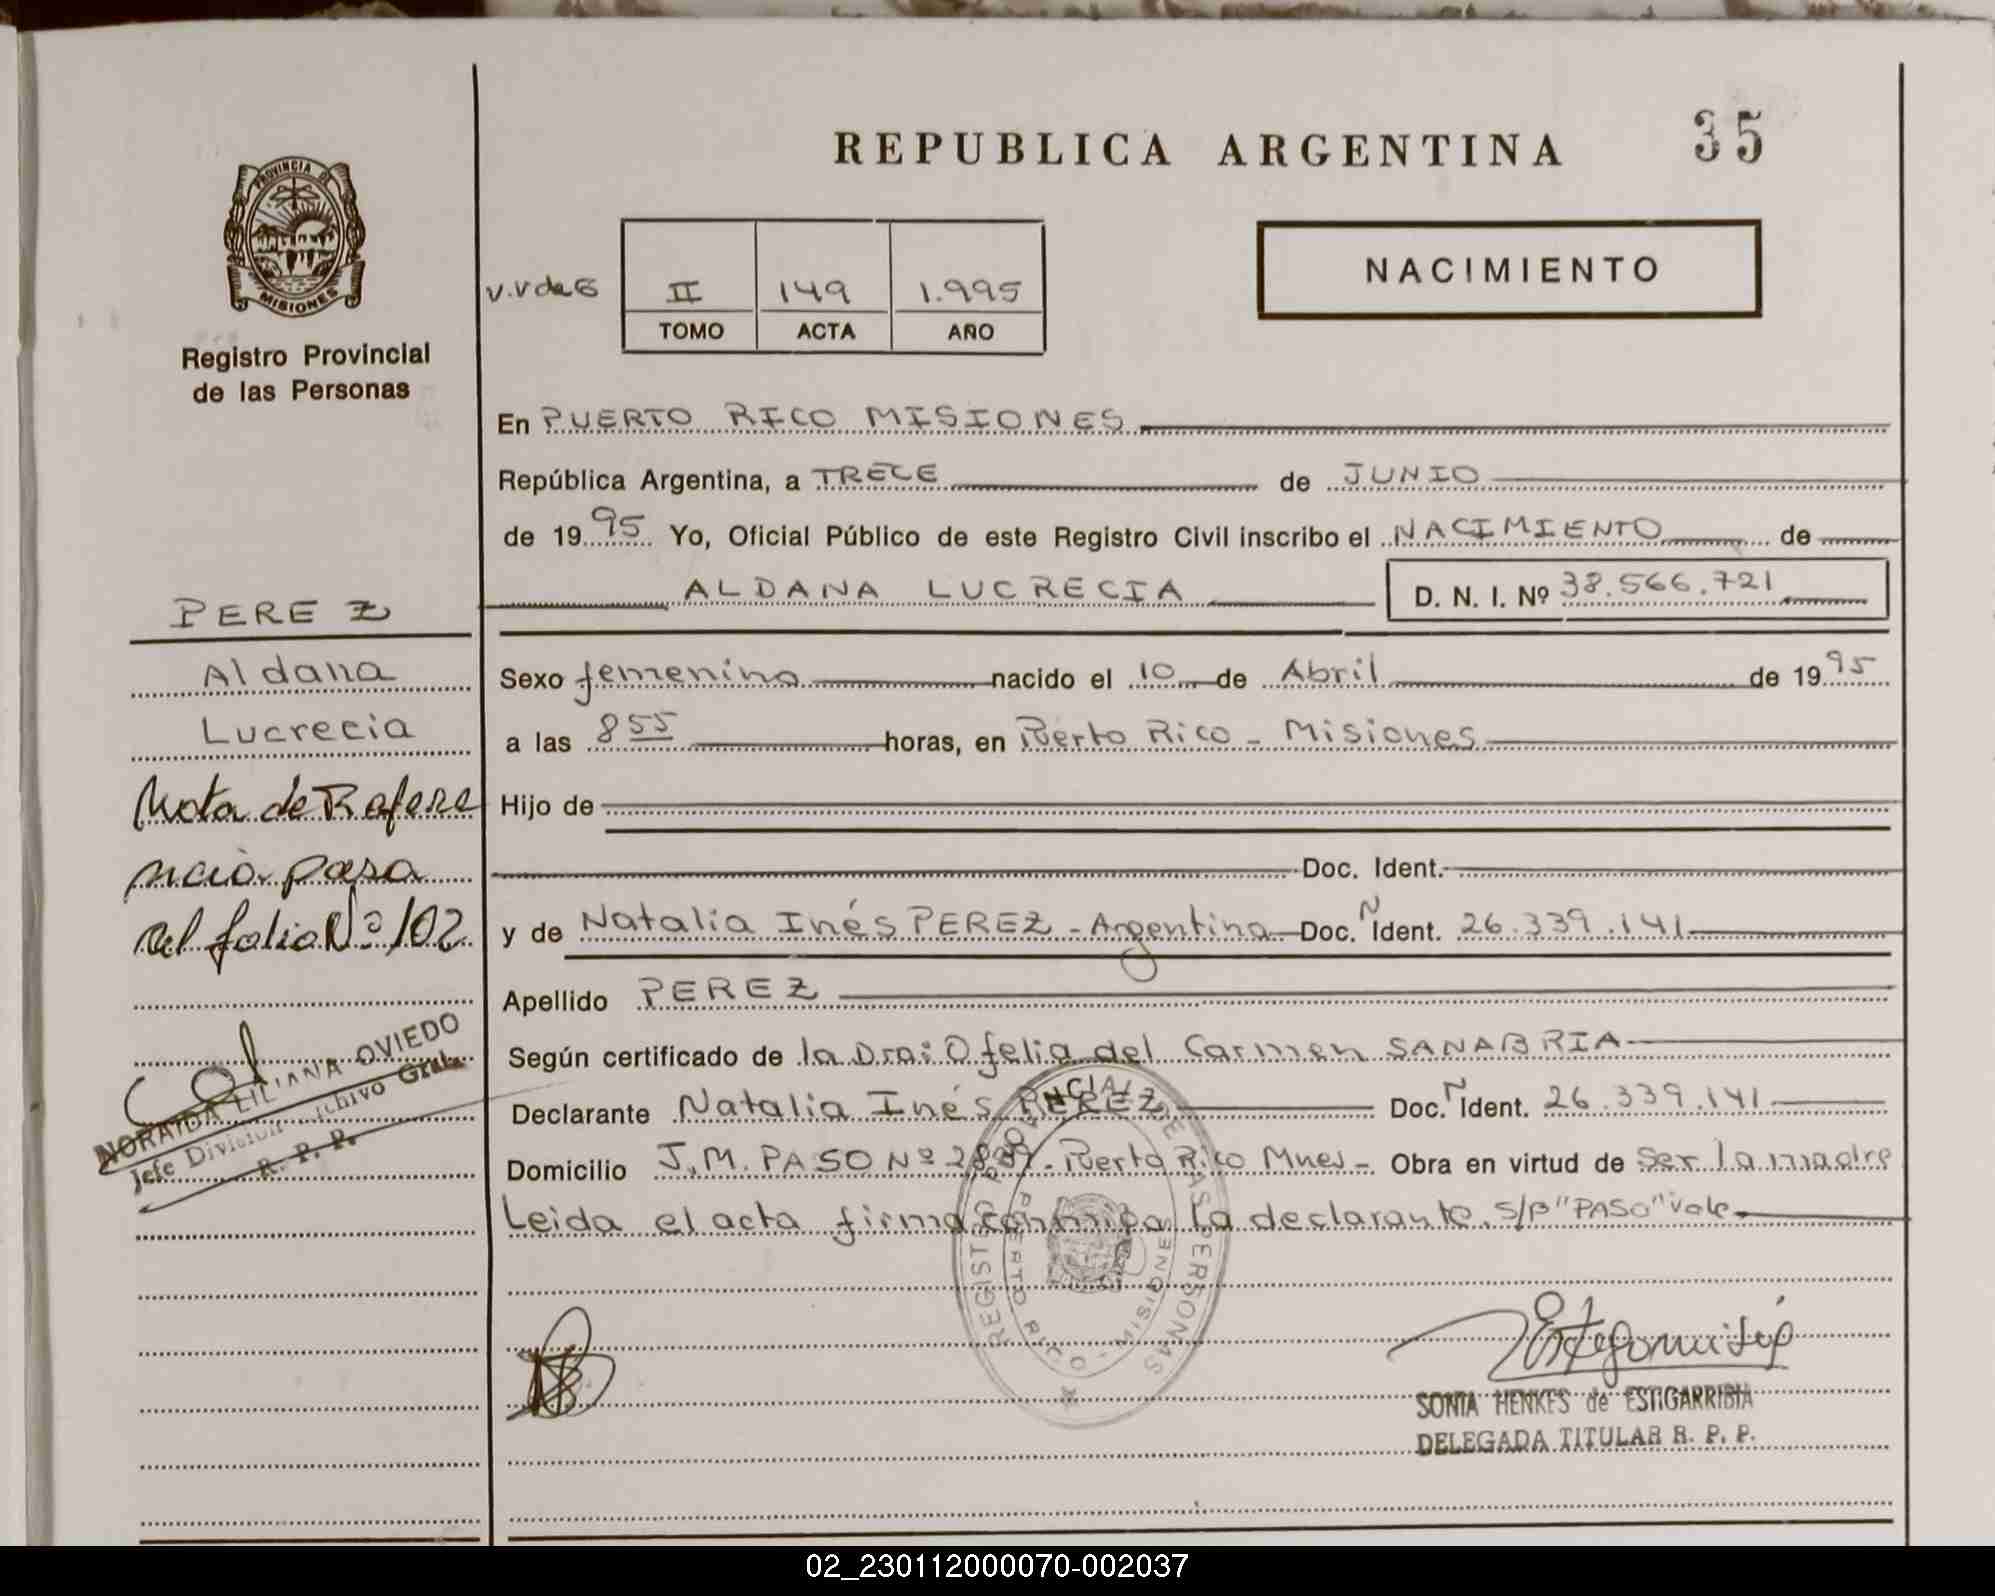 REPUBLICA ARGENTINA 35
PROVINCIA DE
MISIONES
Registro Provincial
de las Personas
II 149 1.995
TOMO ACTA AÑO
NACIMIENTO
En PUERTO RICO MISIONES
República Argentina, a TRECE de JUNIO
de 1995 Yo, Oficial Público de este Registro Civil inscribo el NACIMIENTO de
ALDANA LUCRECIA D. N. I. Nº 38.566.721
PEREZ
Aldana
Lucrecia
Nota de Refere
ncia pasa
al folio Nº 102
NORAIDA LILIANA OVIEDO
Jefe División Archivo Gral.
R. P. P.
Sexo femenino nacido el 10 de Abril de 1995
a las 8 55 horas, en Puerto Rico - Misiones
Hijo de
Doc. Ident.
y de Natalia Inés PEREZ - Argentina Doc. N Ident. 26.339.141
Apellido PEREZ
Según certificado de la Dra: Ofelia del Carmen SANABRIA
Declarante Natalia Inés PEREZ Doc. N Ident. 26.339.141
Domicilio J.M. PASO Nº Puerto Rico Mnes - Obra en virtud de ser la madre
Leida el acta firma conmigo la declarante. S/p "PASO" Vale
REGISTRO PROVINCIAL DE LAS PERSONAS
PUERTO RICO - MISIONES
SONIA HENKES de ESTIGARRIBIA
DELEGADA TITULAR R. P. P.
02_230112000070-002037